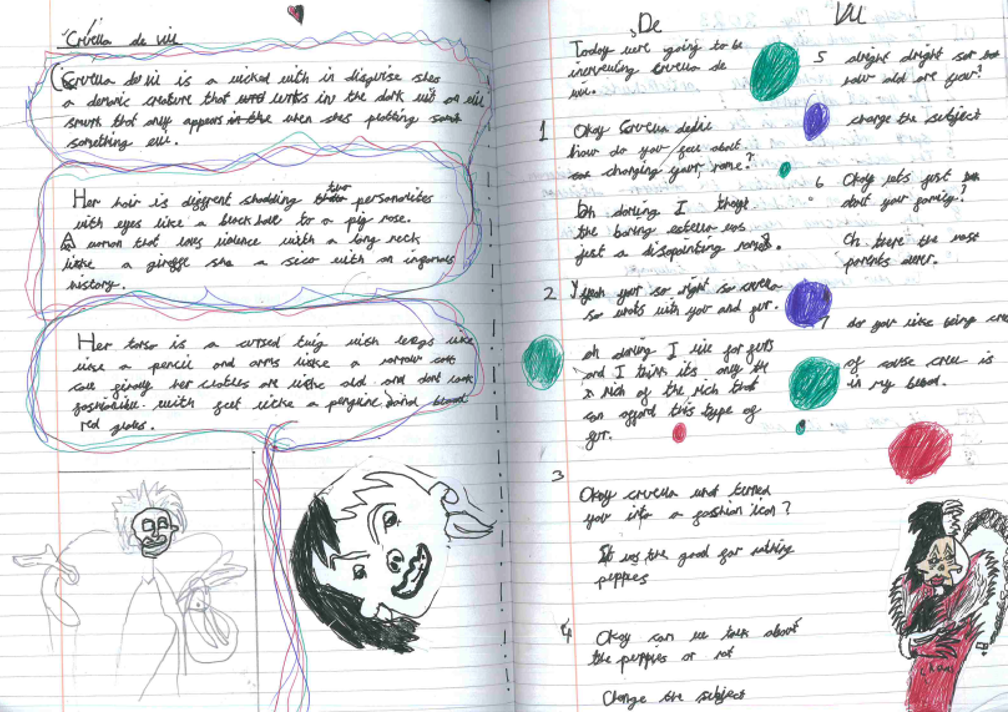 Cruella de vill
Cruella de vil is a wicked witch in disguise shes
a demonic creature that lurks in the dark with an evil
smurk that only appears in the when shes plotting some
something evil.
Her hair is diffrent shadding two personalites
with eyes like a black hole to a pig nose.
A woman that loves violence with a long neck
like a giraffe she a sico with an infamous
history.
Her torso is a cursed twig with leegs like
like a pencil and arms like a
finally her clothes are like old and dont look
fashionible. with feet like a penguine and blood
red gloves.
De Vil
Today were going to be
interveiwing cruella de
vil.
1 Okay cruella devil
how do you feel about
changing your name?
Oh darling I thought
the boring estella was
just a disapointing
2 yeah your so right so cruella
so whats with you and fur.
oh darling I like for furs
and I think its only the
rich of the rich that
can afford this type of
fur.
3 Okay cruella what turned
you into a fasshion icon?
It was the good for nothing
puppies
4 Okay can we talk about
the puppies or not
Change the subject
5 alright alright so
how old are you?
change the subject
6 Okay lets just
about your family?
Oh there the worst
parents ever.
7 do you like being
of course cruel is
in my blood.